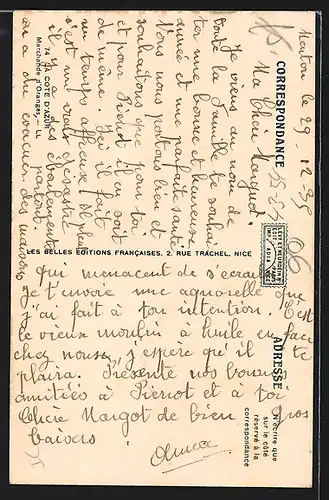 Menton le 29 12-35
Ma Chère Margot.
Je viens au nom de
toute la famille te souhai
ter une bonne et heureuse
année et une parfaite santé
Nous nous portons bien et
souhaitons que pour toi
et Pierrot il en soit
de même. Ici il fait
un temps affreux il pleut
c'est un vrai désastre
il y a des éboulements
partout.
on a évacuer des maisons
qui menacent de s'écrouler
Je t'envoie une aquarelle que
j'ai fait à ton intention. C'est
le vieux moulin à huile en face
chez nous, j'espère qu'il te
plaira. Présente nos bonnes
amitiés à Pierrot et à toi
Chère Margot de bien gros
baisers
CORRESPONDANCE
ADRESSE
N'écrire que
sur le côté
réservé à la
correspondance
74 LA COTE D'AZUR
Marchande d'Oranges. — LL
LES BELLES ÉDITIONS FRANÇAISES, 2, RUE TRACHEL, NICE
06